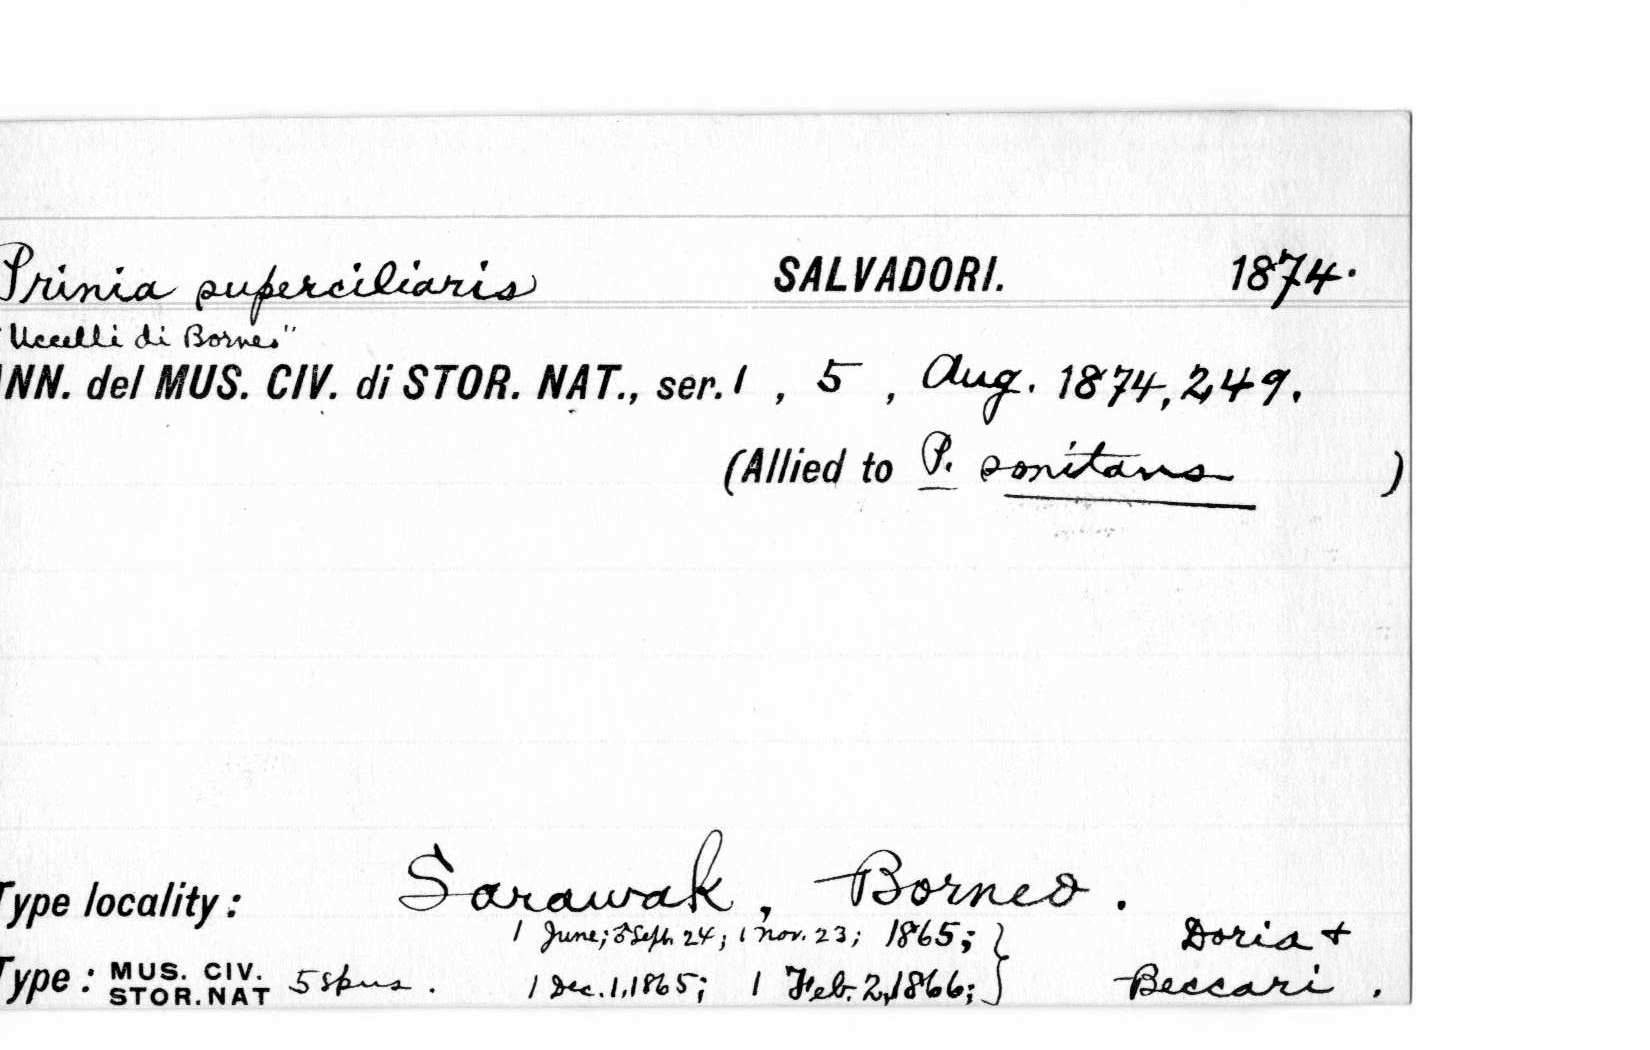 Prinia superciliaris SALVADORI. 1874.
"Uccelli di Borneo"
NN. del MUS. CIV. di STOR. NAT., ser. 1 , 5 , Aug. 1874, 249.
(Allied to P. sonitans )
Type locality: Sarawak, Borneo.
1 June; ♂ Sept. 24; 1 Nov. 23; 1865; } Doria +
Type: MUS. CIV. STOR. NAT 5 spns. 1 Dec. 1, 1865; 1 Feb. 2, 1866; } Beccari.